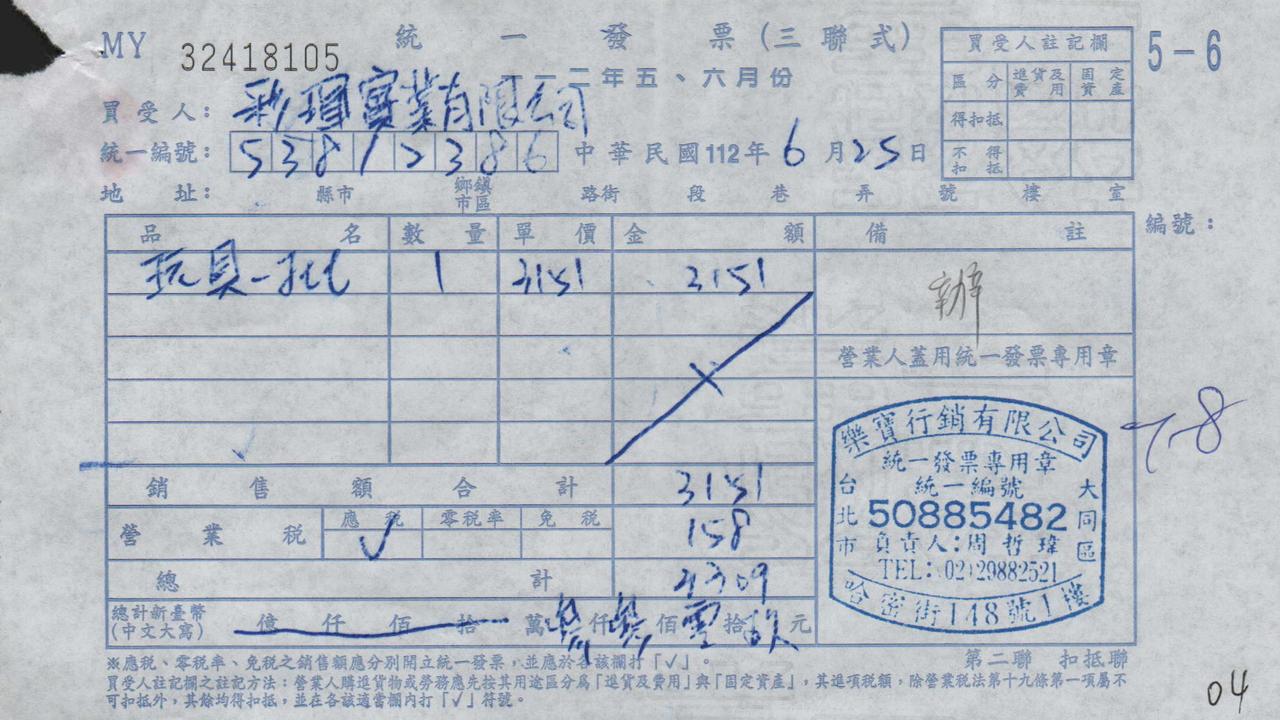 MY 32418105
統一發票(三聯式)
一一二年五、六月份
5-6
買受人註記欄
區分 進貨及費用 固定資產
得扣抵
不得扣抵
買受人: 實業有限公司
統一編號: 53812386
中華民國112年6月25日
地址: 縣市 鄉鎮市區 路街 段 巷 弄 號 樓 室
品名 數量 單價 金額 備註
編號:
玩具一批 1 3151 3151
辦
營業人蓋用統一發票專用章
銷售額合計 3151
營業稅 應稅 ✓ 零稅率 免稅 158
總計 3309
總計新臺幣(中文大寫) 億 仟 佰 拾 萬 叁 仟 叁 佰 零 拾 玖 元
樂寶行銷有限公司
統一發票專用章
統一編號
50885482
負責人:周哲瑋
TEL:(02)29882521
台北市 大同區
哈密街148號1樓
7-8
※應稅、零稅率、免稅之銷售額應分別開立統一發票,並應於各該欄打「✓」。
第二聯 扣抵聯
買受人註記欄之註記方法:營業人購進貨物或勞務應先按其用途區分為「進貨及費用」與「固定資產」,其進項稅額,除營業稅法第十九條第一項屬不
可扣抵外,其餘均得扣抵,並在各該適當欄內打「✓」符號。
04